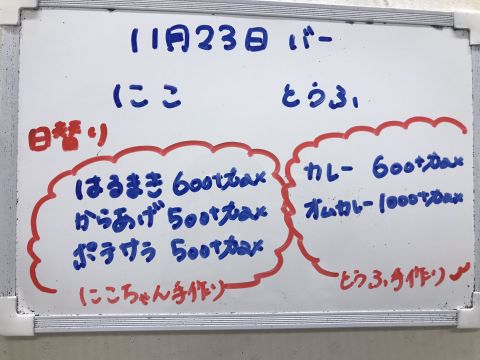 11月23日 バー
にこ とうふ
日替り
はるまき 600+tax
からあげ 500+tax
ポテサラ 500+tax
にこちゃん手作り
カレー 600+tax
オムカレー 1000+tax
とうふ手作り